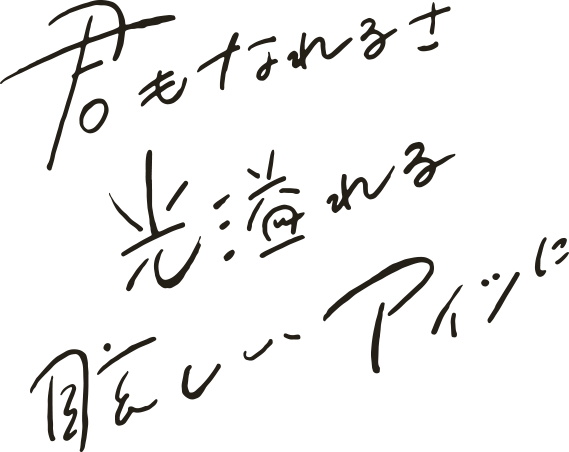 君もなれるさ
光溢れる
眩しいアイツに